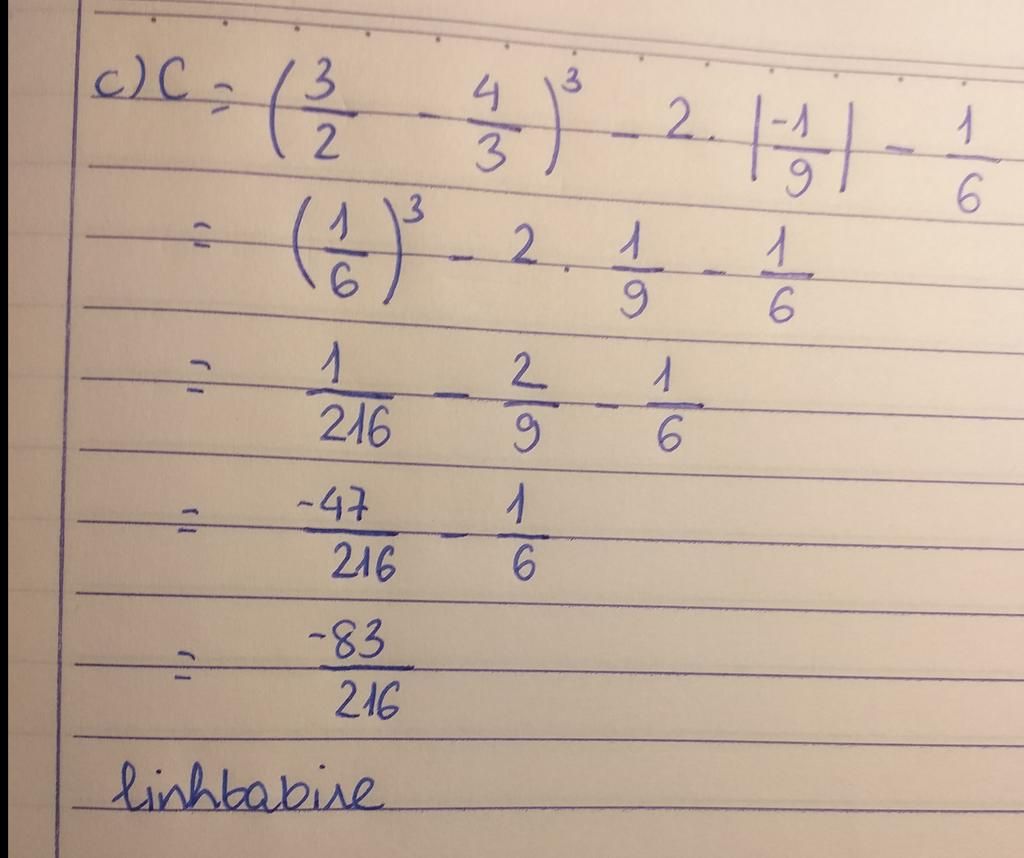 c) C = (3/2 - 4/3)³ - 2 . |-1/9| - 1/6
= (1/6)³ - 2 . 1/9 - 1/6
= 1/216 - 2/9 - 1/6
= -47/216 - 1/6
= -83/216
linhbabine